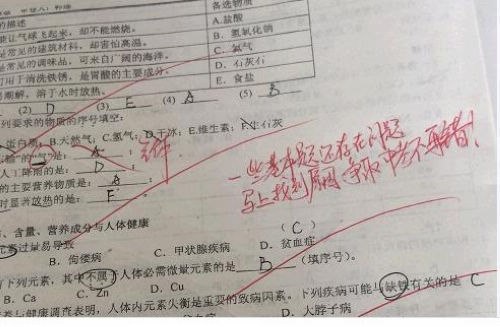 的描述
备选物质
能让气球飞起来，却不能燃烧。
A.盐酸
是常见的建筑材料，却害怕高温。
B. 氢氧化钠
是常见的调味品，可来自广阔的海洋。
C. 氦气
可用于清洗铁锈，是胃酸的主要成分。
D. 石灰石
易潮解，溶于水时放热。
E. 食盐
(2) D (3) E (4) A (5) B
列要求的物质的序号填空：
蛋白质；B.天然气；C.氢气；D.干冰；E.维生素；F.生石灰
的“气”是： A ；
人工降雨的是： D ；
的主要营养物质是： A ；
时显著放热的是： F
一些基本题还存在问题
马上找到原因 争取中考不再错！
、含量、营养成分与人体健康
元素过量易导致 （ C ）
B. 佝偻病 C. 甲状腺疾病 D. 贫血症
下列元素，其中不属于人体必需微量元素的是 B （填序号）。
B. Ca C. Zn D. Cu
健康调查表明，人体内元素失衡是重要的致病因素。下列疾病可能与缺铁有关的是 C
B. D. 大脖子病